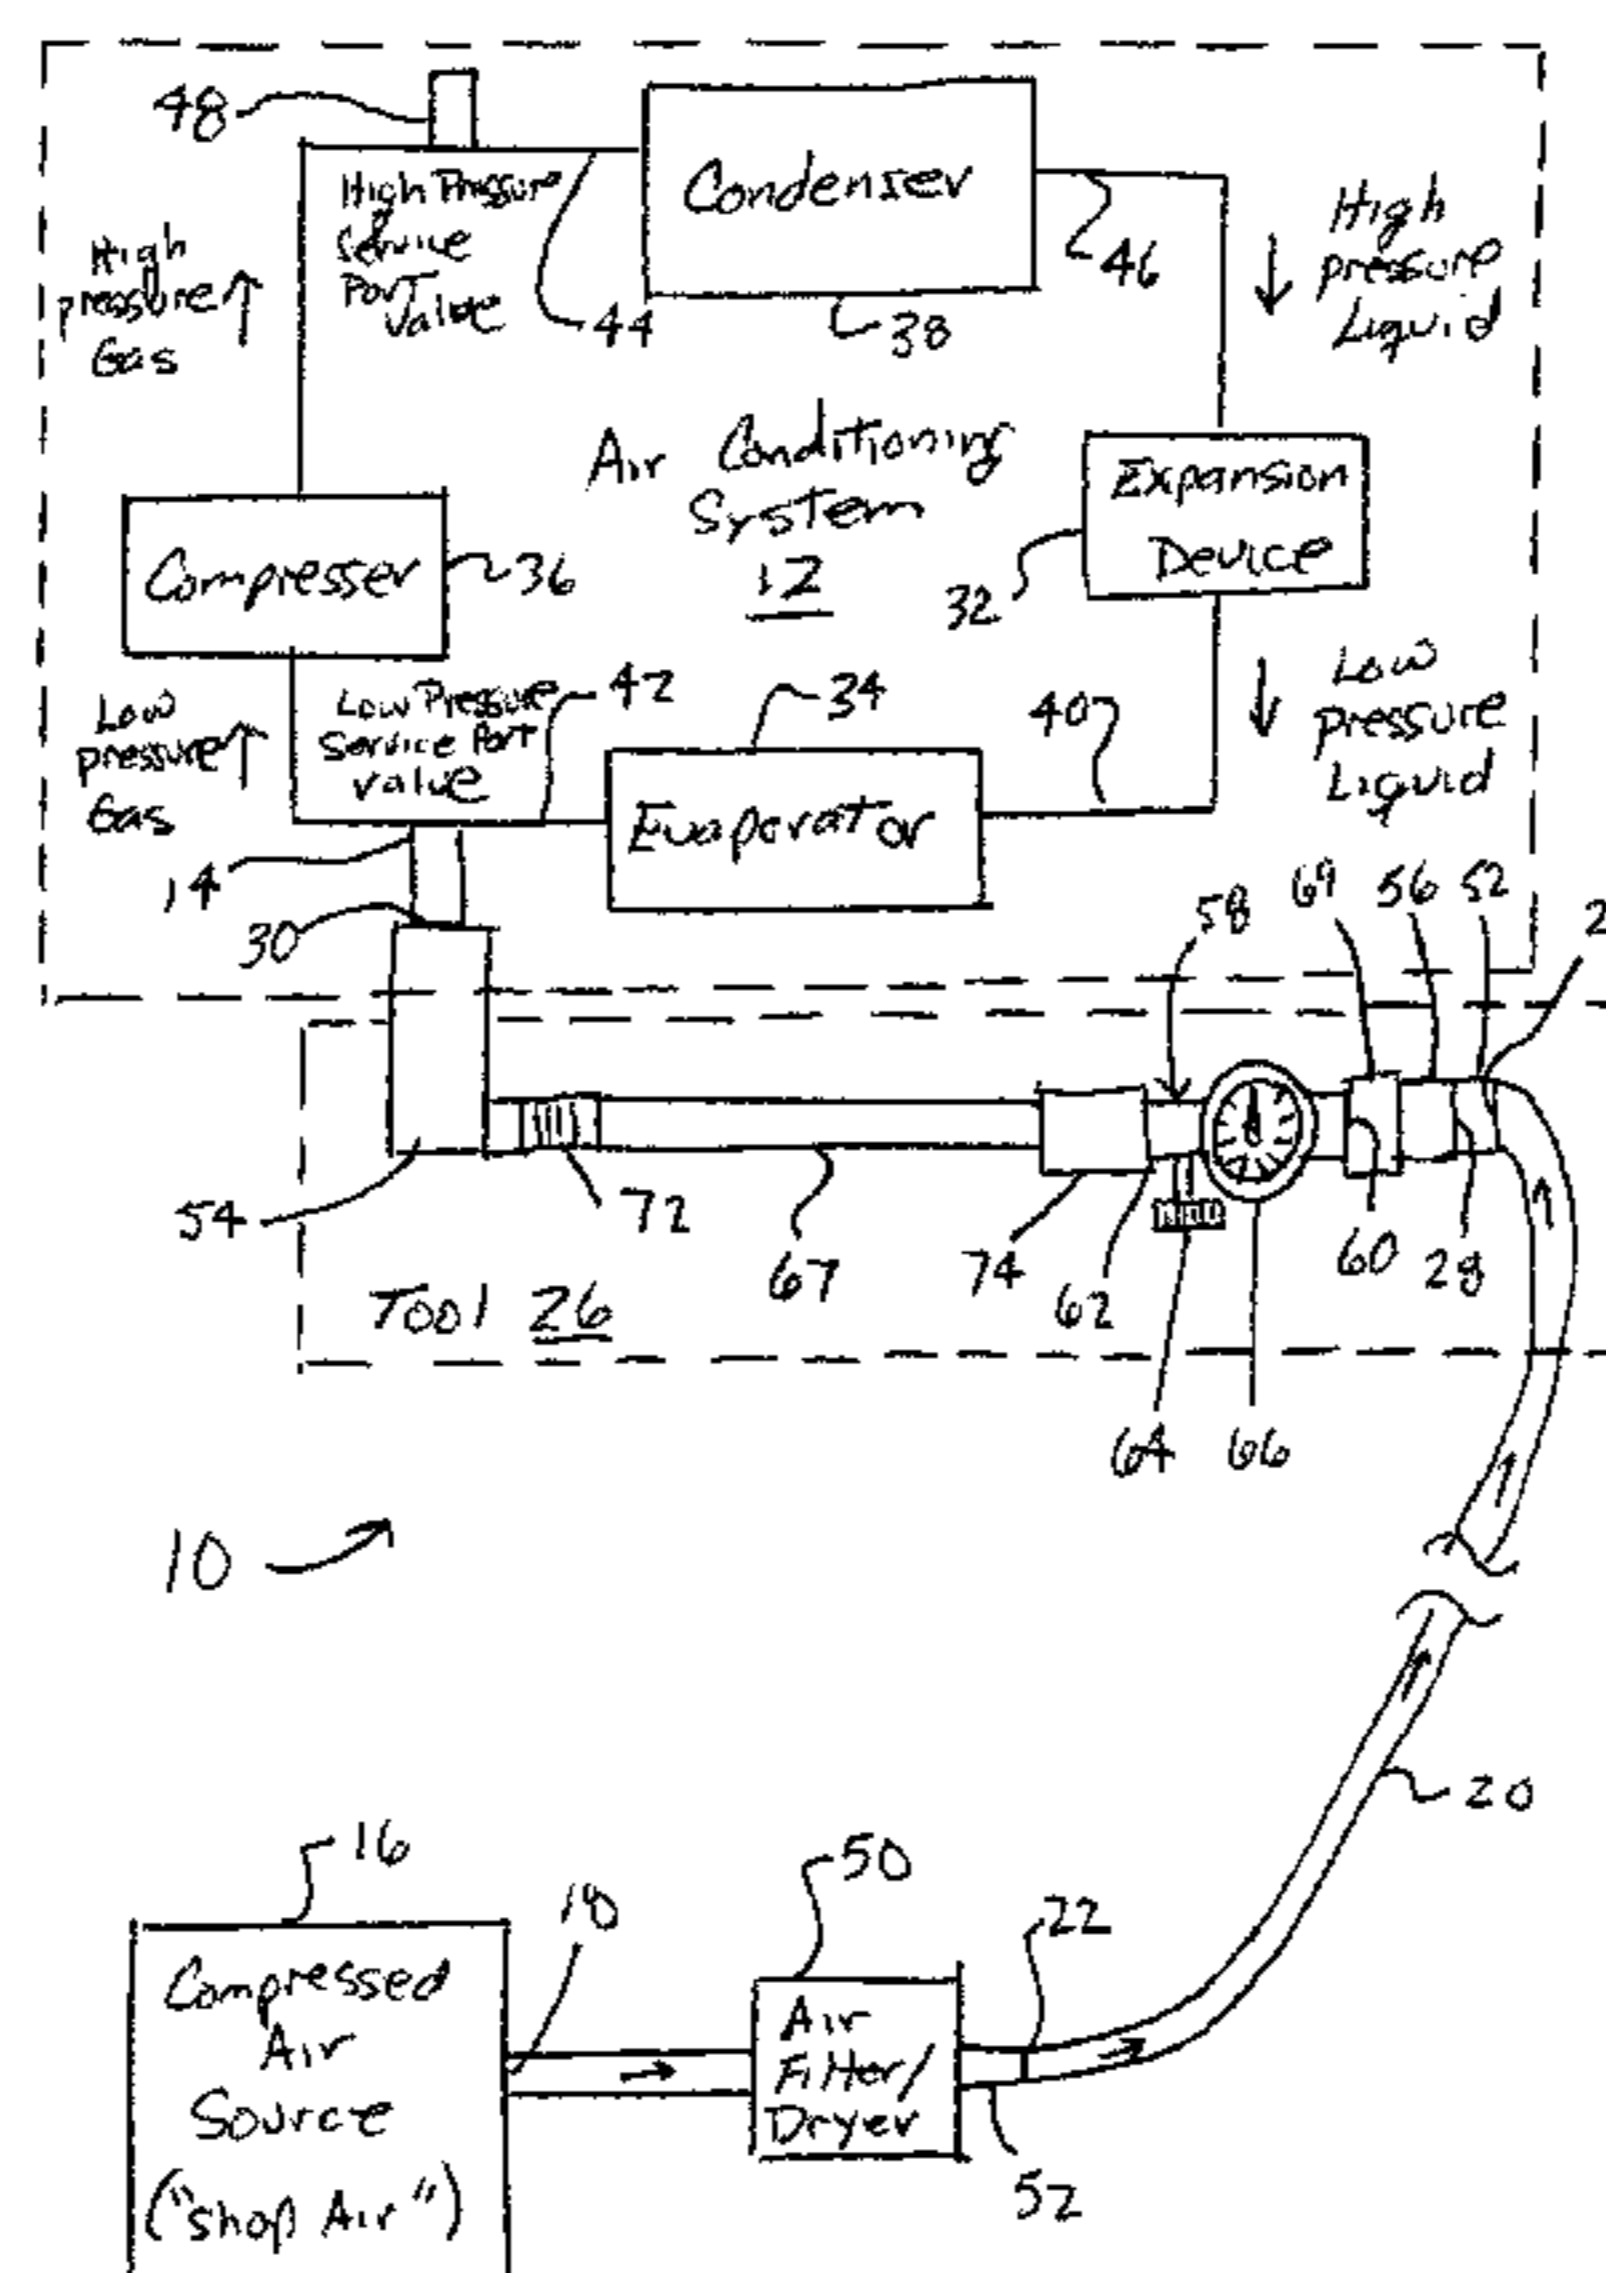 48
High Pressure
Service
Port
Valve
44
Condenser
38
46
High
pressure
Gas
High
pressure
Liquid
Air Conditioning
System
12
Expansion
Device
32
Compresser
36
Low
pressure
Gas
Low Pressure
Service Port
Valve
42
34
40
Low
pressure
Liquid
Evaporator
14
30
58
69
56
52
54
72
67
74
62
60
28
Tool 26
64
66
10
20
16
50
18
22
Compressed
Air
Source
("Shop Air")
Air
Filter/
Dryer
52